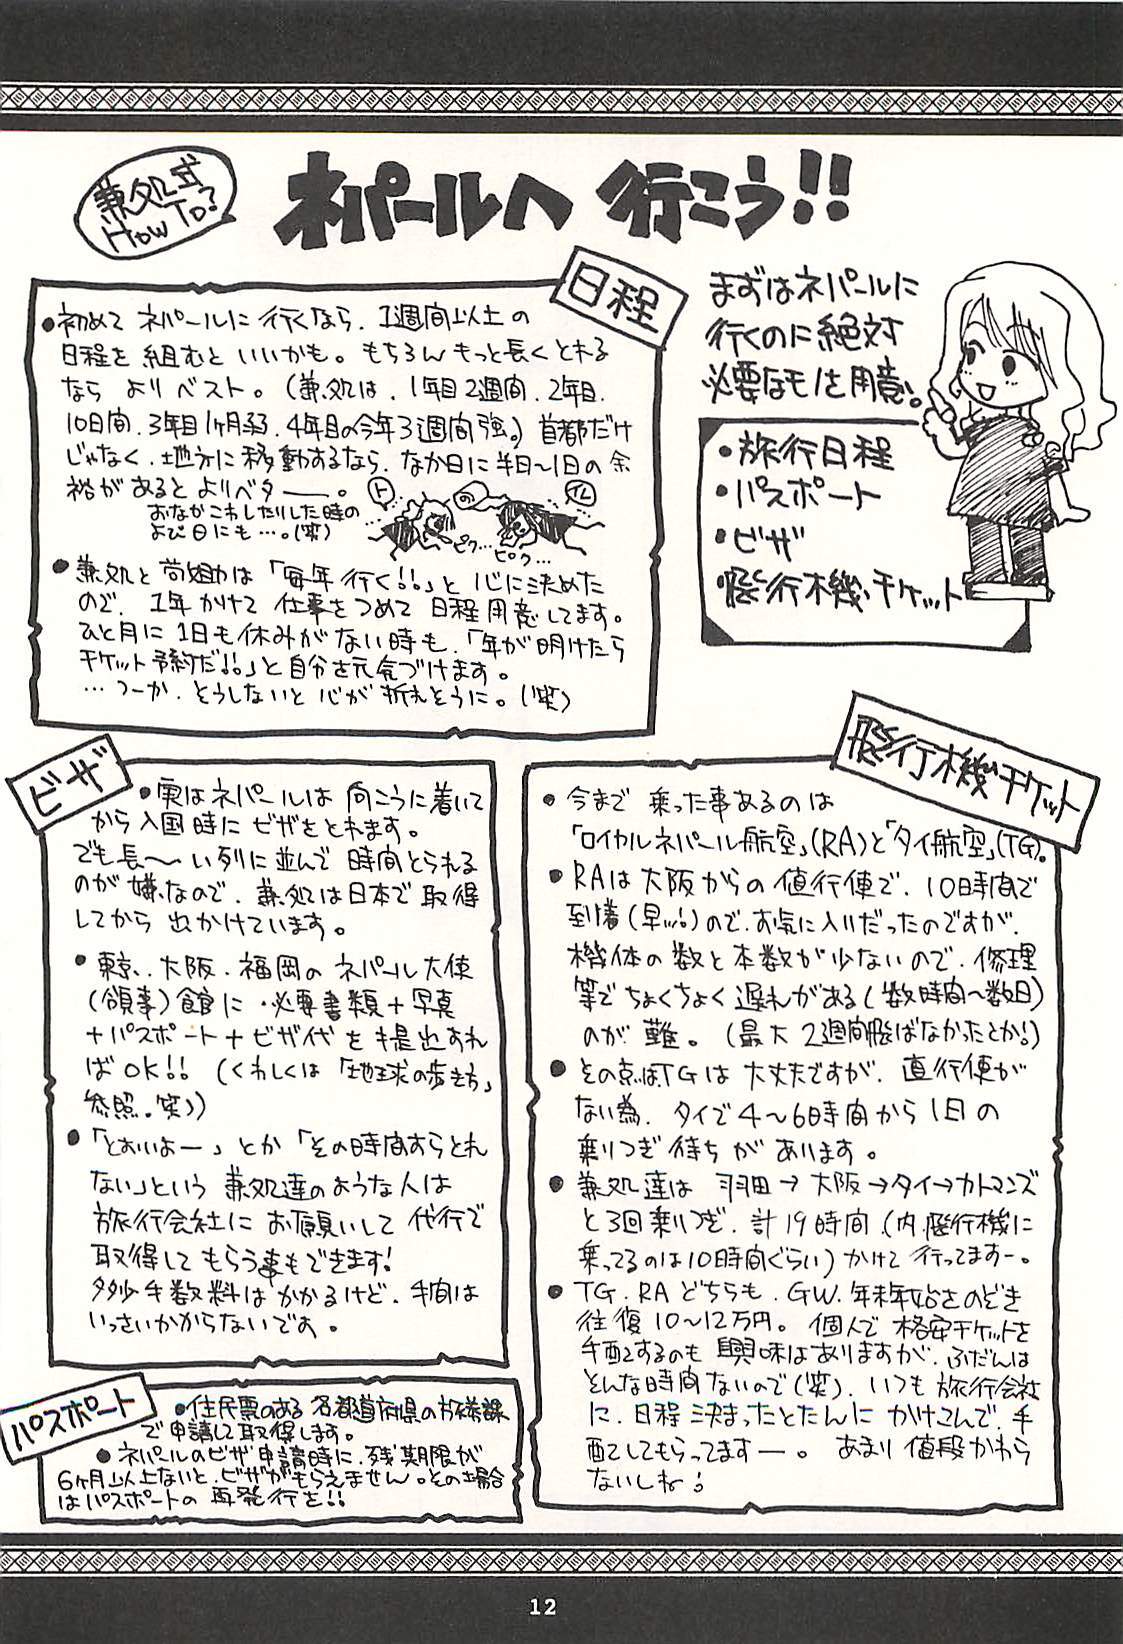 兼処式
HOW TO?
ネパールへ 行こう!!
まずはネパールに
行くのに絶対
必要なモノを用意。
・旅行日程
・パスポート
・ビザ
・飛行機チケット
日程
・初めて ネパールに 行くなら、1週間以上の
日程を 組むと いいかも。もちろん もっと長く とれる
なら より ベスト。(兼処は、1年目2週間、2年目、
10日間、3年目1ヶ月弱、4年目の今年3週間強。)首都だけ
じゃなく、地方に移動するなら、なか日に半日〜1日の余
裕が あると よりベター。
おなかこわしたりした時の
よび日にも…。(笑)
ト
の
イレ
ピク…ピク…
・兼処と は「毎年 行く!!」と 心に決めた
ので、1年かけて 仕事をつめて 日程用意してます。
ひと月に 1日も休みがない時も、「年が明けたら
チケット予約だ!!」と自分を元気づけます。
…つーか、そうしないと 心が 折れそうに。(笑)
ビザ
・実はネパールは 向こうに着いて
から入国時に ビザをとれます。
でも長〜い列に並んで 時間とられる
のが嫌なので、兼処は日本で取得
してから 出かけています。
・東京、大阪、福岡の ネパール大使
(領事)館に、必要書類+写真
+パスポート+ビザ代を提出すれ
ば OK!! (くわしくは「地球の歩き方」
参照。笑))
・「とおいよー」とか「その時間すらとれ
ない」という 兼処達のような人は
旅行会社に お願いして 代行で
取得して もらう事もできます!
多少手数料は かかるけど、手間は
いっさいかからないです。
パスポート
・住民票のある 各都道府県の旅券課
で申請して取得します。
・ネパールのビザ申請時に、残期限が
6ヶ月以上ないと、ビザがもらえません。その場合
はパスポートの 再発行を!!
飛行機チケット
・今まで 乗った事あるのは
「ロイヤルネパール航空」(RA)と「タイ航空」(TG)。
・RAは大阪からの 値行便で、10時間で
到着(早ッ!)ので、お気に入りだったのですが、
機体の数と本数が少ないので、修理
等で ちょくちょく 遅れがある(数時間〜数日)
のが 難。(最大 2週間飛ばなかったとか!)
・その点 TGは 大丈夫ですが、直行便が
ない為、タイで 4〜6時間から 1日の
乗りつぎ待ちが あります。
・兼処達は 羽田→大阪→タイ→カトマンズ
と3回乗りつぎ、計19時間(内、飛行機に
乗ってるのは10時間ぐらい)かけて 行ってますー。
・TG、RA どちらも、GW、年末年始さのぞき
往復10〜12万円。個人で 格安チケットを
手配するのも 興味はありますが、ふだんは
そんな時間ないので(笑)、いつも旅行会社
に、日程 決まったとたんに かけこんで、手
配してもらってますー。あまり 値段かわら
ないしね!
12